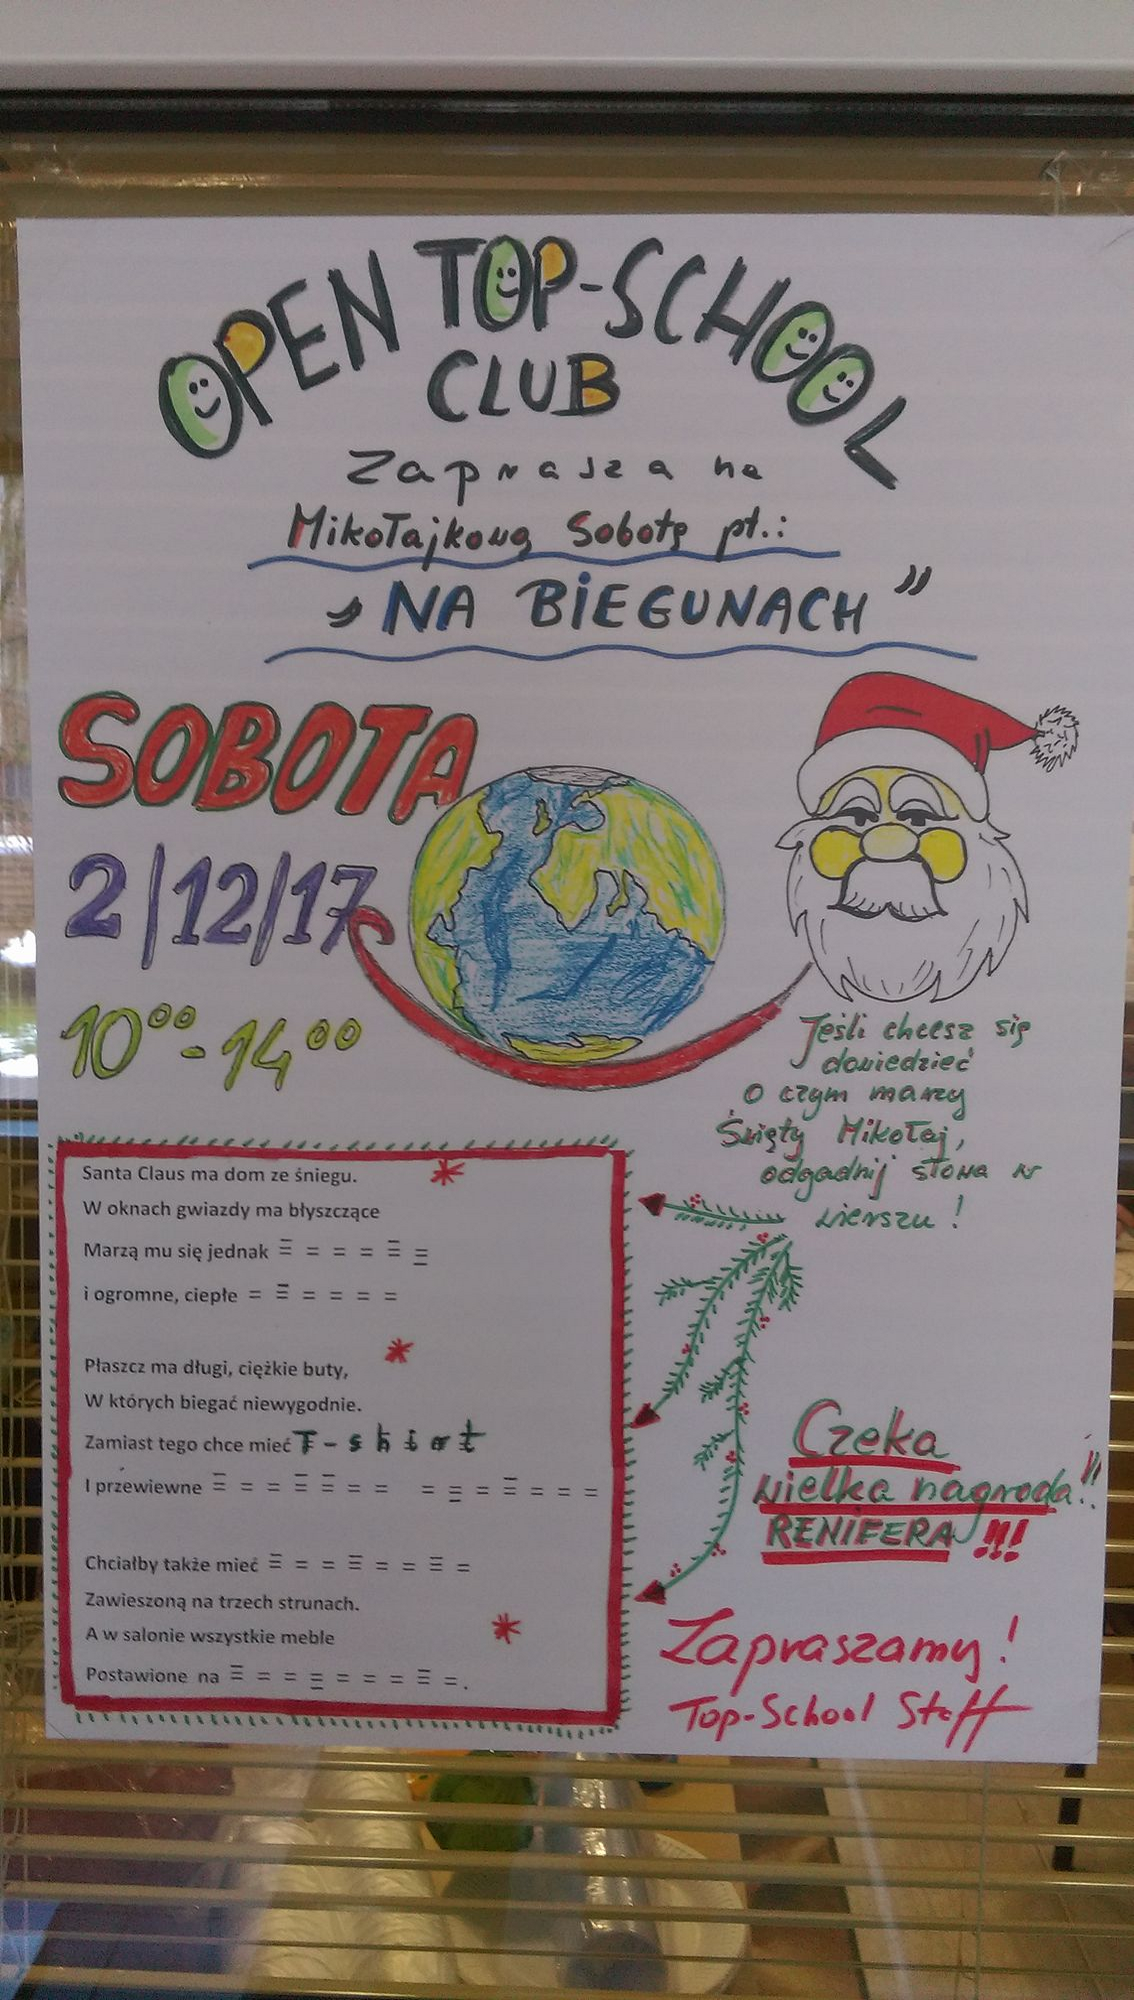 OPEN TOP-SCHOOL
CLUB
Zaprasza na
Mikołajkową Sobotę pt.:
„NA BIEGUNACH”
SOBOTA
2/12/17
10⁰⁰-14⁰⁰
Jeśli chcesz się
dowiedzieć
o czym marzy
Święty Mikołaj,
odgadnij słowa w
wierszu!
Santa Claus ma dom ze śniegu.
W oknach gwiazdy ma błyszczące
Marzą mu się jednak
i ogromne, ciepłe
Płaszcz ma długi, ciężkie buty,
W których biegać niewygodnie.
Zamiast tego chce mieć T-shirt
I przewiewne
Chciałby także mieć
Zawieszoną na trzech strunach.
A w salonie wszystkie meble
Postawione na .
Czeka
wielka nagroda!!
RENIFERA !!!
Zapraszamy!
Top-School Staff